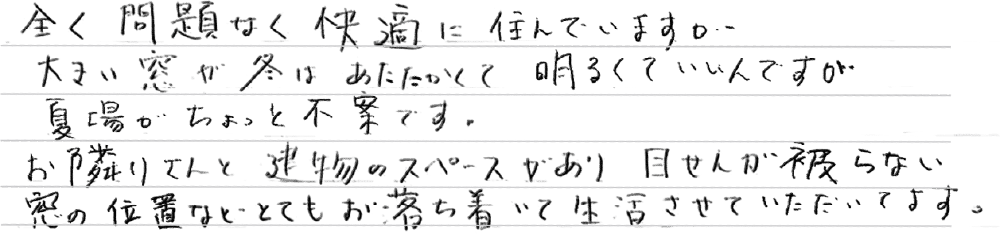 全く問題なく快適に住んでいますが…
大きい窓が冬はあたたかくて明るくていいんですが
夏場がちょっと不案です。
お隣りさんと建物のスペースがあり目せんが被らない
窓の位置などとてもお落ち着いて生活させていただいてます。